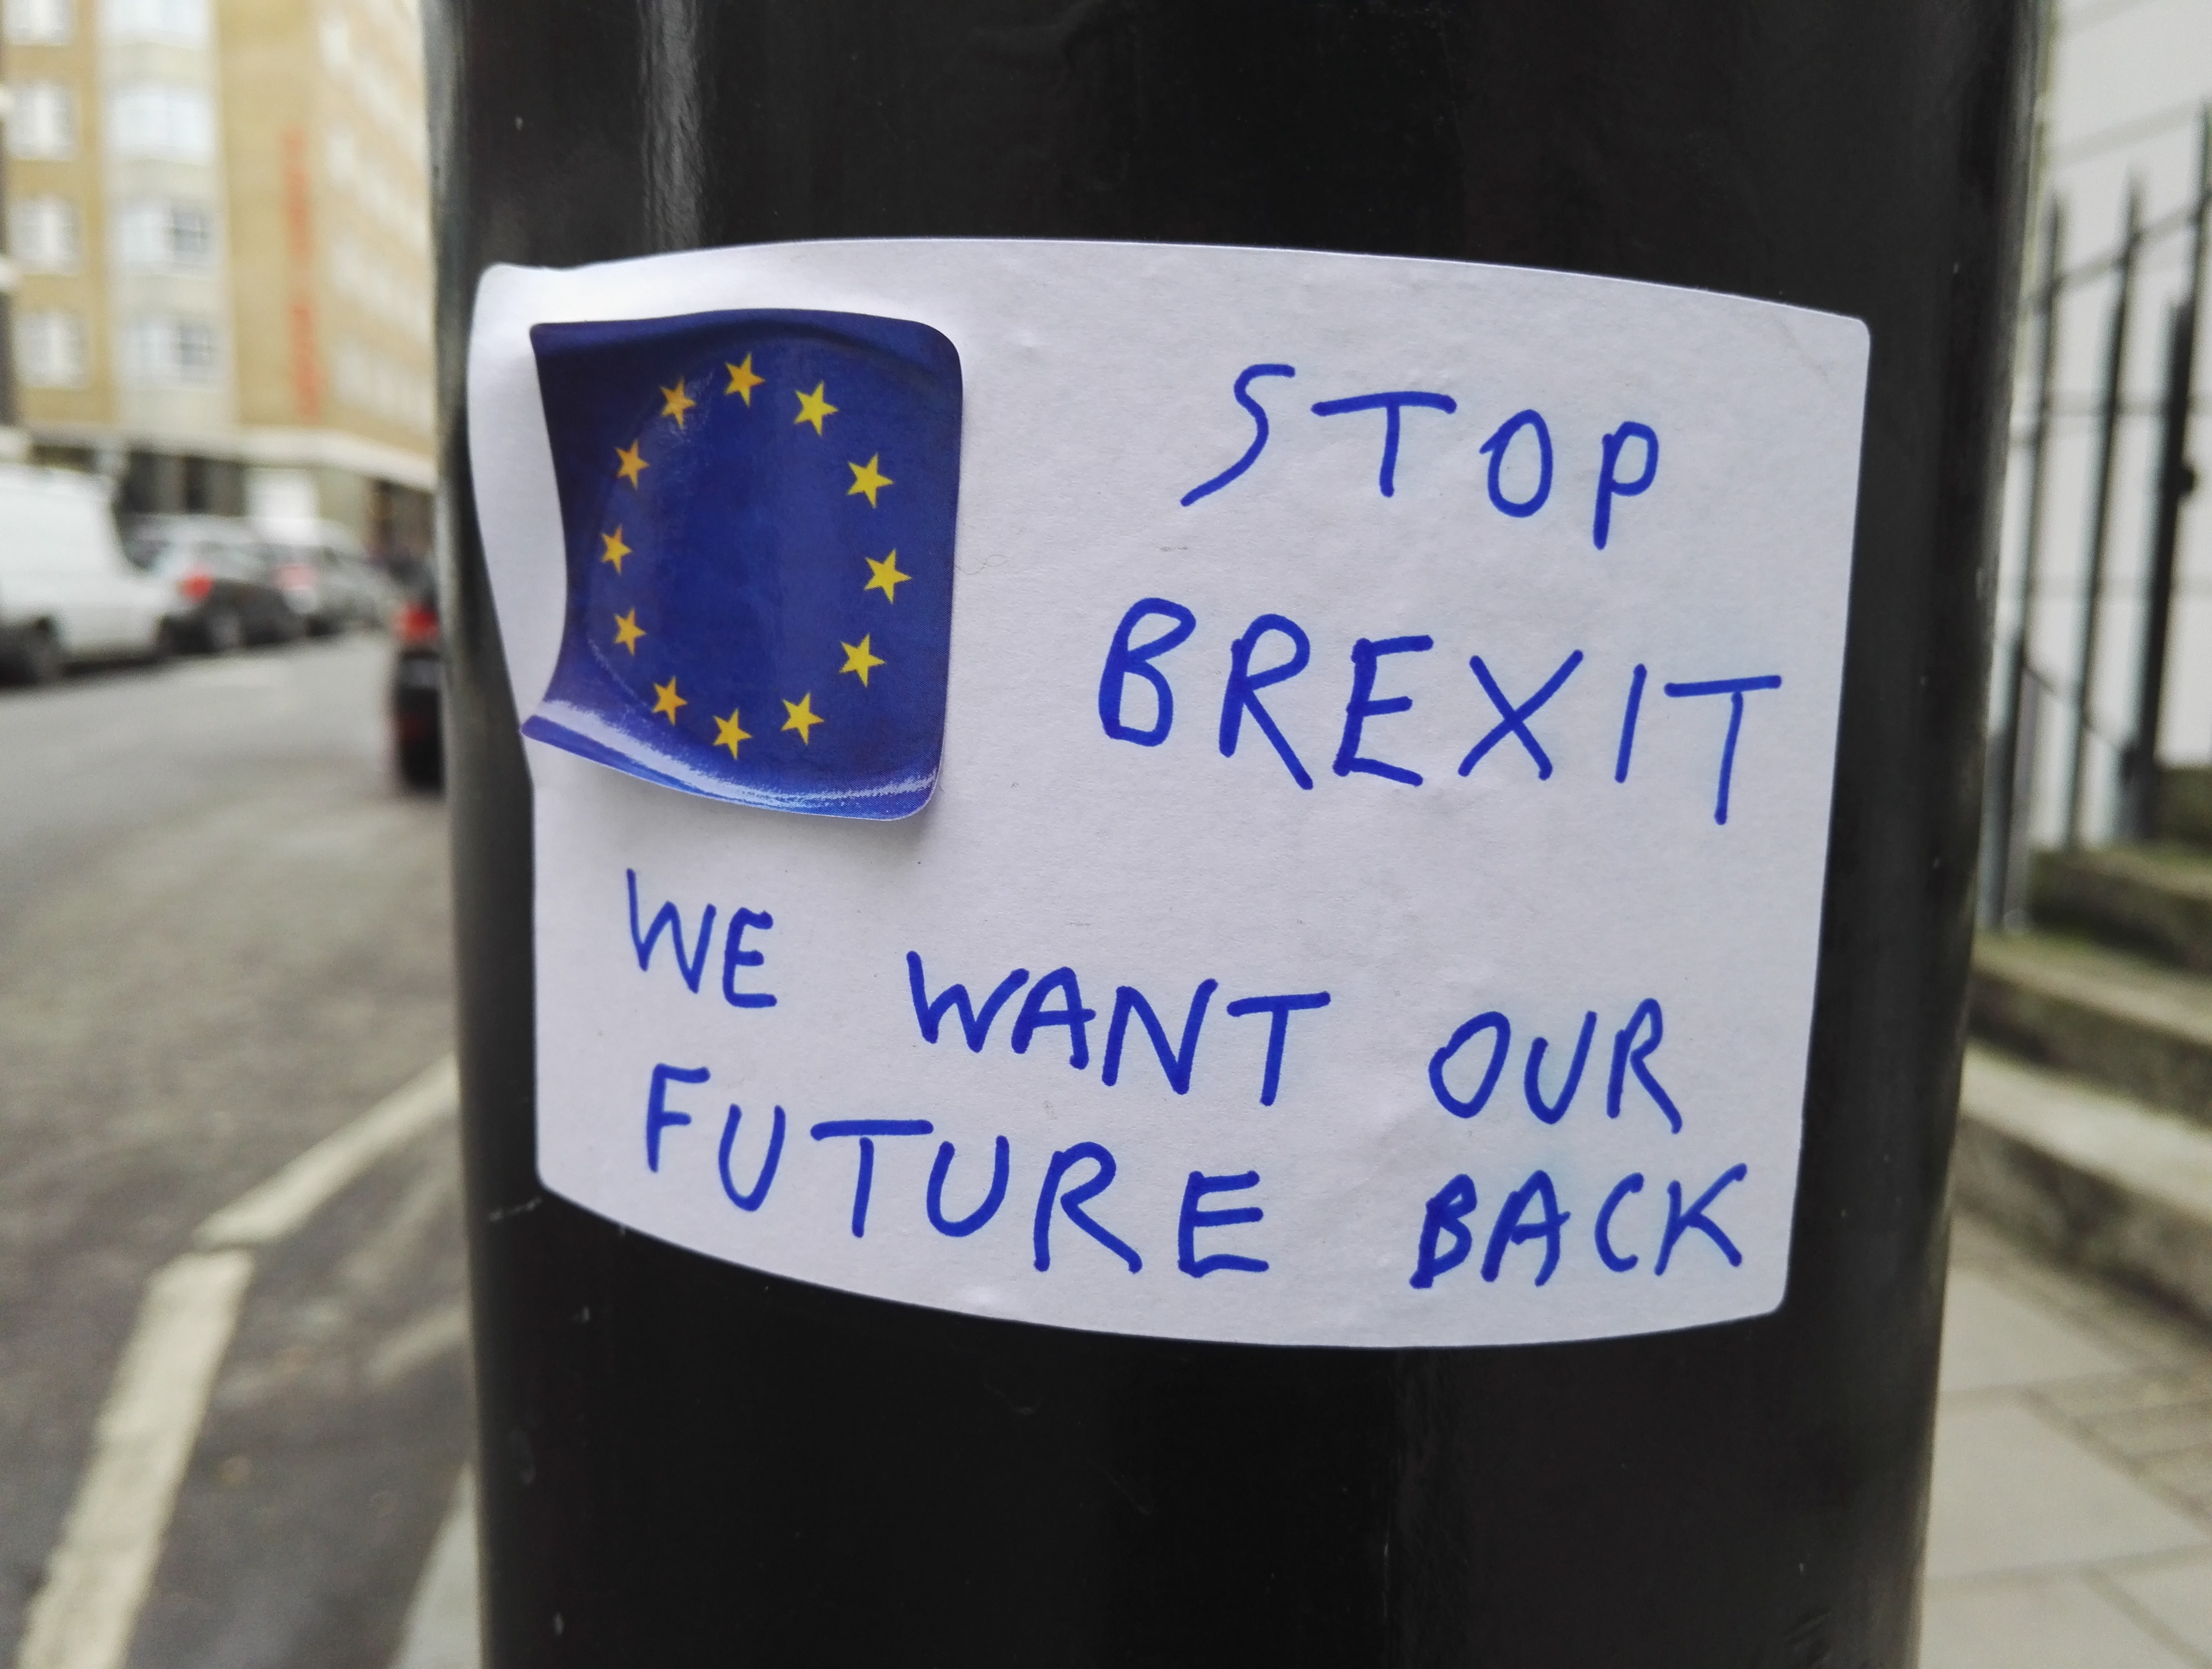 STOP
BREXIT
WE WANT OUR
FUTURE BACK